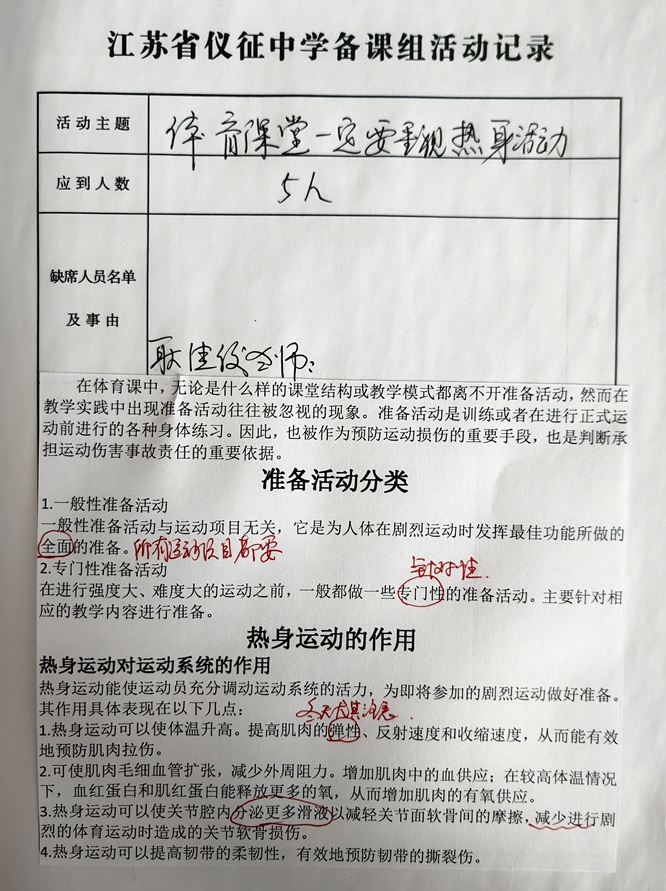 江苏省仪征中学备课组活动记录
活动主题
体育课堂一定要重视热身活动
应到人数
5人
缺席人员名单
及事由
耿佳俊老师：
在体育课中，无论是什么样的课堂结构或教学模式都离不开准备活动，然而在
教学实践中出现准备活动往往被忽视的现象。准备活动是训练或者在进行正式运
动前进行的各种身体练习。因此，也被作为预防运动损伤的重要手段，也是判断承
担运动伤害事故责任的重要依据。
准备活动分类
1.一般性准备活动
一般性准备活动与运动项目无关，它是为人体在剧烈运动时发挥最佳功能所做的
全面的准备。所有运动项目都要
2.专门性准备活动
针对性.
在进行强度大、难度大的运动之前，一般都做一些专门性的准备活动。主要针对相
应的教学内容进行准备。
热身运动的作用
热身运动对运动系统的作用
热身运动能使运动员充分调动运动系统的活力，为即将参加的剧烈运动做好准备。
其作用具体表现在以下几点：
冬天尤其注意.
1.热身运动可以使体温升高。提高肌肉的弹性、反射速度和收缩速度，从而能有效
地预防肌肉拉伤。
2.可使肌肉毛细血管扩张，减少外周阻力。增加肌肉中的血供应；在较高体温情况
下，血红蛋白和肌红蛋白能释放更多的氧，从而增加肌肉的有氧供应。
3.热身运动可以使关节腔内分泌更多滑液以减轻关节面软骨间的摩擦，减少进行剧
烈的体育运动时造成的关节软骨损伤。
4.热身运动可以提高韧带的柔韧性，有效地预防韧带的撕裂伤。